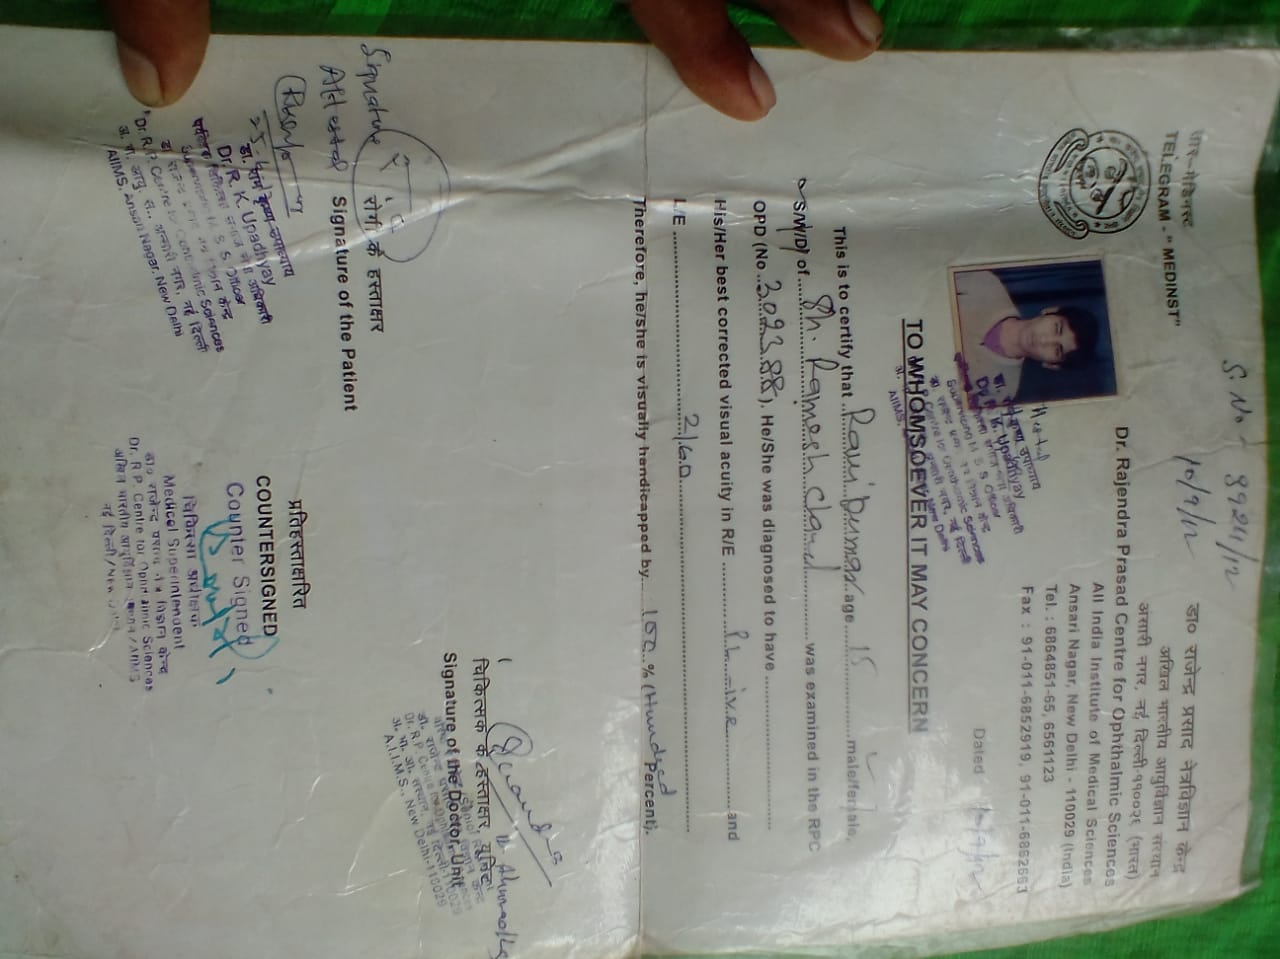 S. No - 9921/12
10/9/12
तार-मेडिनस्ट
TELEGRAM - " MEDINST"
डा० राजेन्द्र प्रसाद नेत्रविज्ञान केन्द्र
अखिल भारतीय आयुर्विज्ञान संस्थान
अंसारी नगर, नई दिल्ली-११००२९ (भारत)
Dr. Rajendra Prasad Centre for Ophthalmic Sciences
All India Institute of Medical Sciences
Ansari Nagar, New Delhi - 110029 (India)
Tel. : 6864851-65, 6561123
Fax : 91-011-6852919, 91-011-6862663
Dated 10/9/12
TO WHOMSOEVER IT MAY CONCERN
This is to certify that Ravi Kumar age 15 male/female,
S/W/D/ of Sh. Ramesh Chand was examined in the RPC
OPD (No. 202388). He/She was diagnosed to have
His/Her best corrected visual acuity in R/E PL-ive and
L/E 2/60
Therefore, he/she is visually handicapped by 100 % (Hundred Percent).
Signature
Attested
रोगी के हस्ताक्षर
Signature of the Patient
Dr. R. K. Upadhyay
Supervising M S S Officer
Dr. R. P. Centre for Ophthalmic Sciences
AIIMS, Ansari Nagar, New Delhi
प्रतिहस्ताक्षरित
COUNTERSIGNED
Counter Signed
चिकित्सा अधीक्षक
Medical Superintendent
डा० राजेन्द्र प्रसाद नेत्र विज्ञान केन्द्र
Dr. R. P. Centre for Ophthalmic Sciences
नई दिल्ली/New Delhi
चिकित्सक के हस्ताक्षर, यूनिट
Signature of the Doctor, Unit
A.I.I.M.S., New Delhi-110029